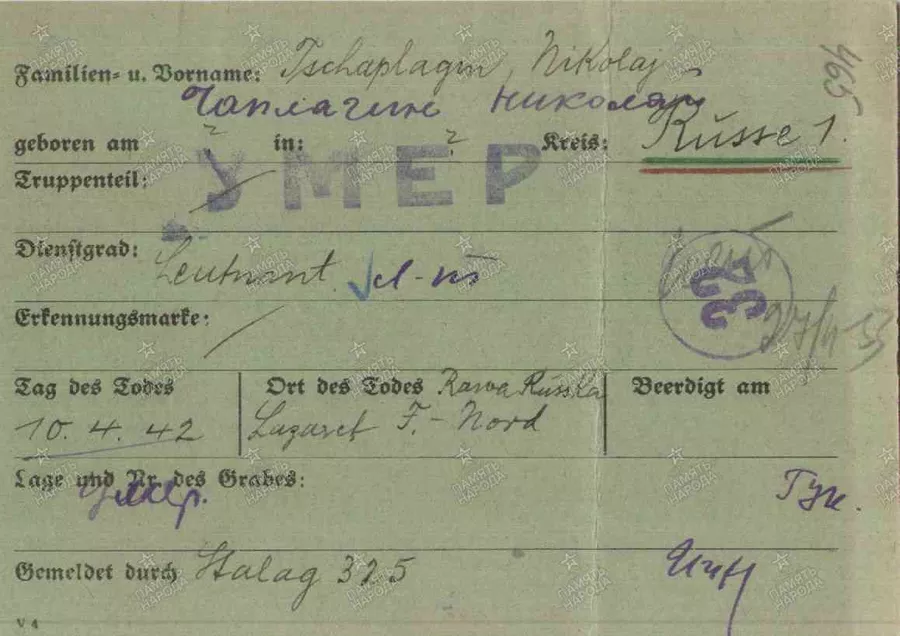 Familien- u. Vorname: Tschaplagin, Nikolaj
Чаплагин Николай
465
geboren am ? in: ? Kreis: Russe 1.
УМЕР
Truppenteil:
Dienstgrad: Leutnant. л-нт
32
Erkennungsmarke:
Tag des Todes Ort des Todes Rawa Russka Beerdigt am
10.4.42 Lazaret F.-Nord
Lage und Nr. des Grabes:
умер.
Gemeldet durch Stalag 325
V 4
ПАМЯТЬ НАРОДА